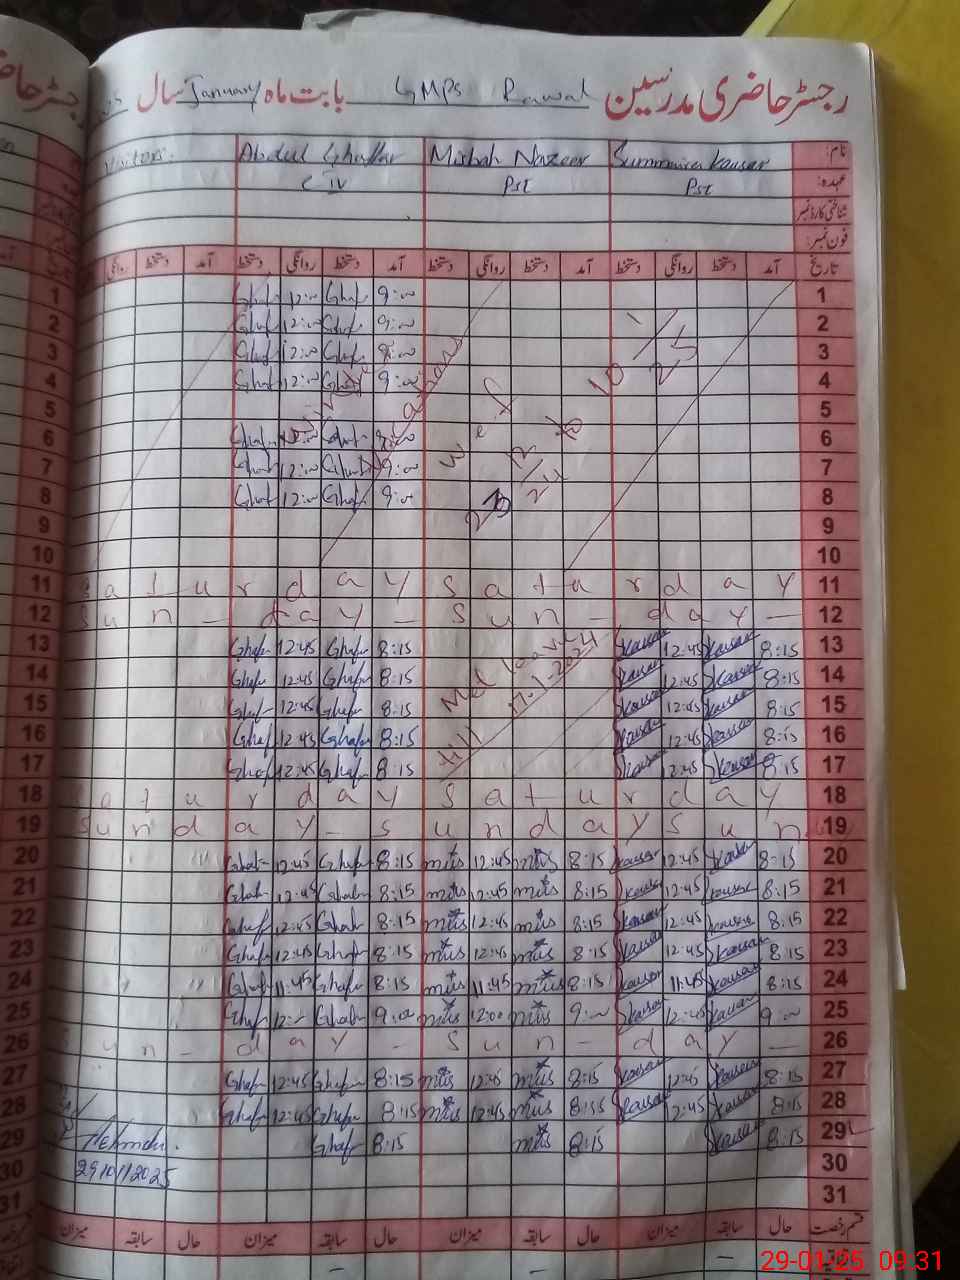 رجسٹر حاضری مدرسین GMPS Rawal بابت ماہ January سال
نام: Summaira Kausar Misbah Nazeer Abdul Ghaffar Visitors.
عہدہ: PST PST C-IV
شناختی کارڈ نمبر
فون نمبر:
تاریخ آمد دستخط روانگی دستخط آمد دستخط روانگی دستخط آمد دستخط روانگی دستخط آمد دستخط روانگی
1 9:00 Ghaf 12:00 Ghaf
2 9:00 Ghaf 12:00 Ghaf
3 9:00 Ghaf 12:00 Ghaf
4 9:00 Ghaf 12:00 Ghaf
5
6 Ghaf Ghaf
7 9:00 Ghaf 12:00 Ghaf
8 9:00 Ghaf 12:00 Ghaf
9
10
w.e.f 23/12/24 to 10/1/25
11 Saturday Saturday
12 Sun-day-Sun-day-
13 8:15 Kausar 12:45 Kausar 8:15 Ghafr 12:45 Ghafr
14 8:15 Kausar 12:45 Kausar 8:15 Ghafr 12:45 Ghafr
15 8:15 Kausar 12:45 Kausar 8:15 Ghafr 12:45 Ghafr
16 8:15 Kausar 12:45 Kausar 8:15 Ghafr 12:45 Ghaf
17 8:15 Kausar 12:45 Kausar 8:15 Ghafr 12:45 Ghaf
Md leave
till 17-1-2024
18 Saturday Saturday
19 Sunday-Sunday Sun
20 8:15 Kausar 12:45 Kausar 8:15 mis 12:45 mis 8:15 Ghafr 12:45 Ghaf
21 8:15 Kausar 12:45 Kausar 8:15 mis 12:45 mis 8:15 Ghaf 12:45 Ghaf
22 8:15 Kausar 12:45 Kausar 8:15 mis 12:45 mis 8:15 Ghaf 12:45 Ghaf
23 8:15 Kausar 12:45 Kausar 8:15 mis 12:45 mis 8:15 Ghafr 12:45 Ghaf
24 8:15 Kausar 11:45 Kausar 8:15 mis 11:45 mis 8:15 Ghafr 11:45 Ghaf
25 9:00 Kausar 12:45 Kausar 9:00 mis 12:00 mis 9:00 Ghaf 12:- Ghaf
26 Sun-day-Sun-day-
27 8:15 Kausar 12:45 Kausar 8:15 mis 12:45 mis 8:15 Ghafr 12:45 Ghafr
28 8:15 Kausar 12:45 Kausar 8:15 mis 12:45 mis 8:15 Ghafr 12:45 Ghafr
29 8:15 Kausar 8:15 mis 8:15 Ghaf
30 29/01/2025
31
قسم رخصت حال سابقہ میزان حال سابقہ میزان حال سابقہ میزان
29-01-25 09:31